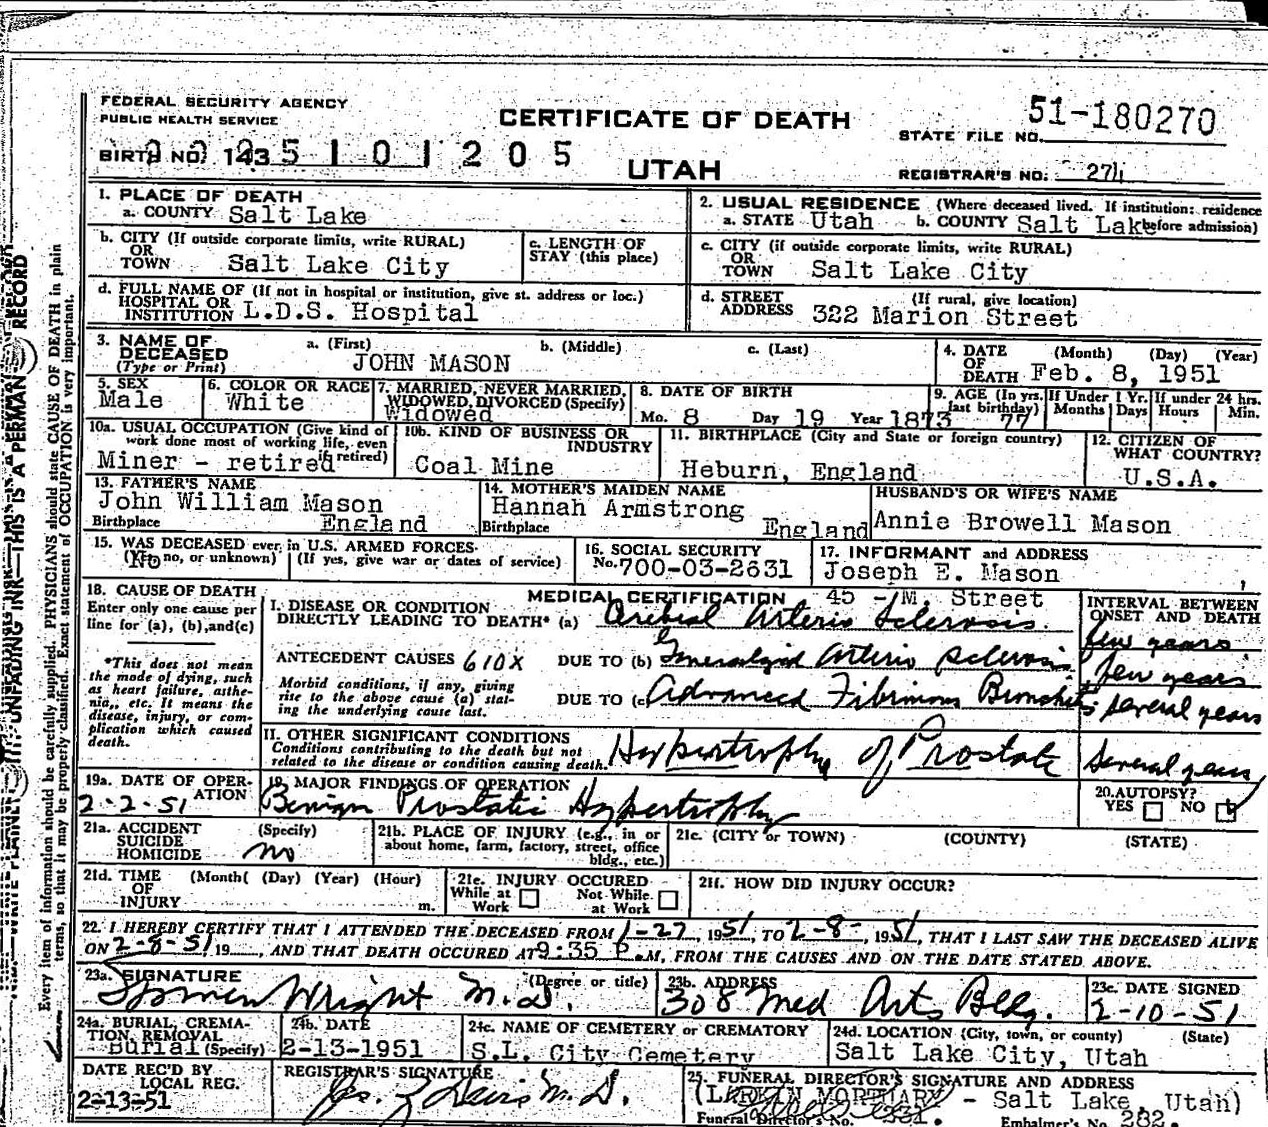 FEDERAL SECURITY AGENCY
PUBLIC HEALTH SERVICE
CERTIFICATE OF DEATH
UTAH
STATE FILE NO. 51-180270
BIRTH NO. 143 5101205
REGISTRAR'S NO. 274
1. PLACE OF DEATH
a. COUNTY Salt Lake
2. USUAL RESIDENCE (Where deceased lived. If institution: residence before admission)
a. STATE Utah b. COUNTY Salt Lake
b. CITY (If outside corporate limits, write RURAL)
OR
TOWN Salt Lake City
c. LENGTH OF
STAY (this place)
c. CITY (if outside corporate limits, write RURAL)
OR
TOWN Salt Lake City
d. FULL NAME OF (If not in hospital or institution, give st. address or loc.)
HOSPITAL OR
INSTITUTION L.D.S. Hospital
d. STREET (If rural, give location)
ADDRESS 322 Marion Street
3. NAME OF
DECEASED
(Type or Print)
a. (First) b. (Middle) c. (Last)
JOHN MASON
4. DATE (Month) (Day) (Year)
OF
DEATH Feb. 8, 1951
5. SEX
Male
6. COLOR OR RACE
White
7. MARRIED, NEVER MARRIED,
WIDOWED, DIVORCED (Specify)
Widowed
8. DATE OF BIRTH
Mo. 8 Day 19 Year 1873
9. AGE (In yrs. last birthday) 77
If Under 1 Yr. Months Days
If under 24 hrs. Hours Min.
10a. USUAL OCCUPATION (Give kind of
work done most of working life, even
if retired)
Miner - retired
10b. KIND OF BUSINESS OR
INDUSTRY
Coal Mine
11. BIRTHPLACE (City and State or foreign country)
Heburn, England
12. CITIZEN OF
WHAT COUNTRY?
U.S.A.
13. FATHER'S NAME
John William Mason
Birthplace England
14. MOTHER'S MAIDEN NAME
Hannah Armstrong
Birthplace England
HUSBAND'S OR WIFE'S NAME
Annie Browell Mason
15. WAS DECEASED ever in U.S. ARMED FORCES
(Yes, no, or unknown) (If yes, give war or dates of service)
No
16. SOCIAL SECURITY
No. 700-03-2631
17. INFORMANT and ADDRESS
Joseph E. Mason
45 - M. Street
18. CAUSE OF DEATH
Enter only one cause per
line for (a), (b), and (c)
*This does not mean
the mode of dying, such
as heart failure, asthe-
nia, etc. It means the
disease, injury, or com-
plication which caused
death.
MEDICAL CERTIFICATION
INTERVAL BETWEEN
ONSET AND DEATH
I. DISEASE OR CONDITION
DIRECTLY LEADING TO DEATH* (a) Cerebral Arterio Sclerosis few years
ANTECEDENT CAUSES 610X DUE TO (b) Generalized Arterio Sclerosis few years
Morbid conditions, if any, giving
rise to the above cause (a) stat-
ing the underlying cause last.
DUE TO (c) Advanced Fibrinous Bronchitis several years
II. OTHER SIGNIFICANT CONDITIONS
Conditions contributing to the death but not
related to the disease or condition causing death.
Hypertrophy of Prostate several years
19a. DATE OF OPER-
ATION
2-2-51
19. MAJOR FINDINGS OF OPERATION
Benign Prostatic Hypertrophy
20. AUTOPSY?
YES NO
21a. ACCIDENT (Specify)
SUICIDE
HOMICIDE no
21b. PLACE OF INJURY (e.g., in or
about home, farm, factory, street, office
bldg., etc.)
21c. (CITY or TOWN) (COUNTY) (STATE)
21d. TIME (Month) (Day) (Year) (Hour)
OF
INJURY m.
21e. INJURY OCCURED
While at Work Not While at Work
21f. HOW DID INJURY OCCUR?
22. I HEREBY CERTIFY THAT I ATTENDED THE DECEASED FROM 1-27, 1951, TO 2-8-, 1951, THAT I LAST SAW THE DECEASED ALIVE
ON 2-8-51 19__, AND THAT DEATH OCCURED AT 9:35 P.M, FROM THE CAUSES AND ON THE DATE STATED ABOVE.
23a. SIGNATURE (Degree or title)
Wright M.D.
23b. ADDRESS
308 Med Arts Bldg.
23c. DATE SIGNED
2-10-51
24a. BURIAL, CREMA-
TION, REMOVAL
Burial (Specify)
24b. DATE
2-13-1951
24c. NAME OF CEMETERY or CREMATORY
S.L. City Cemetery
24d. LOCATION (City, town, or county) (State)
Salt Lake City, Utah
DATE REC'D BY
LOCAL REG.
2-13-51
REGISTRAR'S SIGNATURE
Davis M.D.
25. FUNERAL DIRECTOR'S SIGNATURE AND ADDRESS
(LARKIN MORTUARY - Salt Lake, Utah)
Funeral Director's No. 231. Embalmer's No. 282.
Every item of information should be carefully supplied. PHYSICIANS should state CAUSE OF DEATH in plain
terms, so that it may be properly classified. Exact statement of OCCUPATION is very important.
UNFADING INK—THIS IS A PERMANENT RECORD